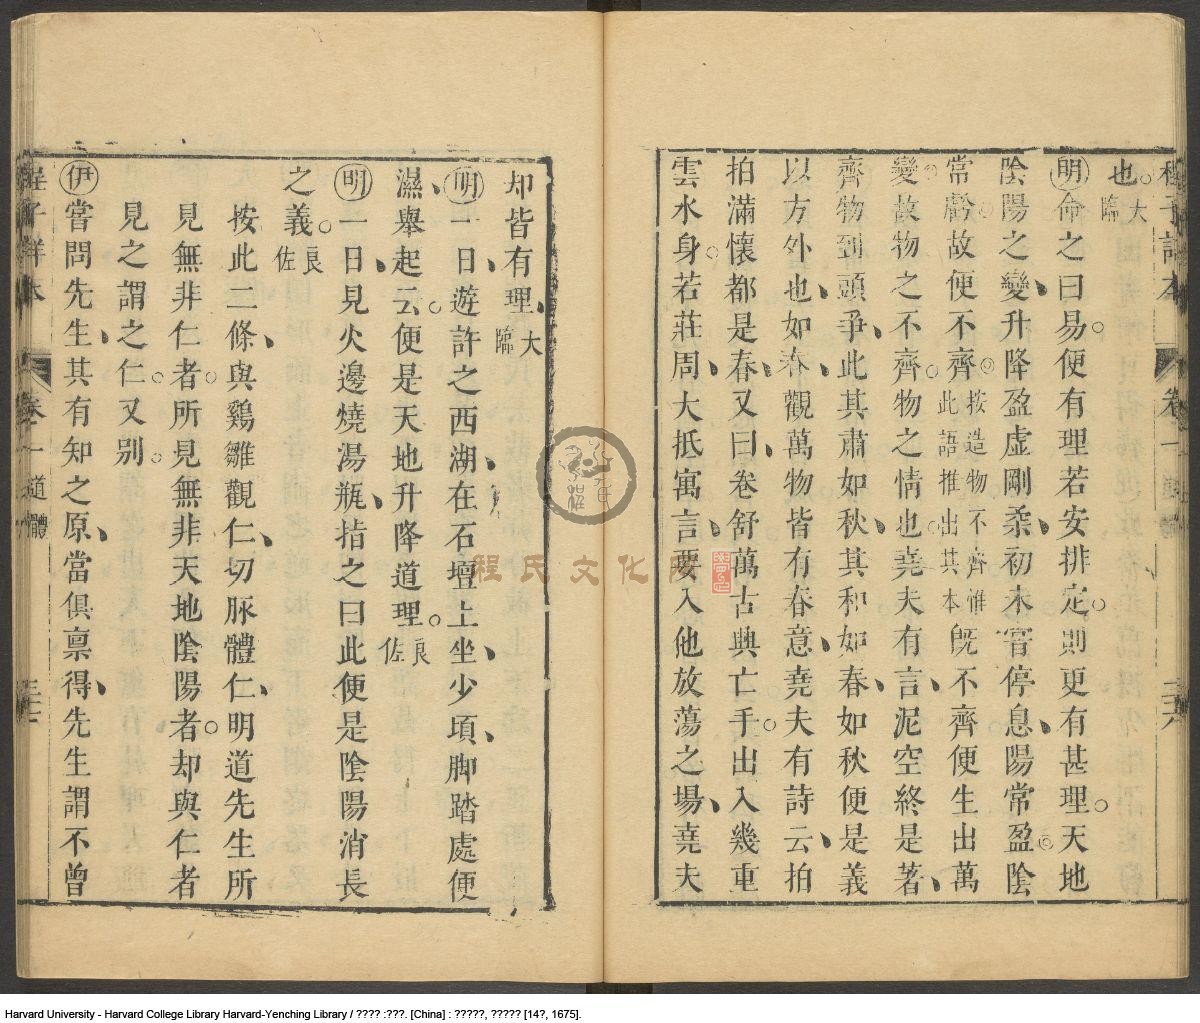 也大臨
明命之曰易便有理若安排定則更有甚理天地
陰陽之變升降盈虛剛柔初未嘗停息陽常盈陰
常虧故便不齊按造物不齊惟此語推出其本既不齊便生出萬
變故物之不齊物之情也堯夫有言泥空終是著
齊物到頭爭此其肅如秋其和如春如秋便是義
以方外也如春觀萬物皆有春意堯夫有詩云拍
拍滿懷都是春又曰卷舒萬古興亡手出入幾重
雲水身若莊周大抵寓言要入他放蕩之場堯夫
却皆有理大臨
明一日遊許之西湖在石壇上坐少頃脚踏處便
濕舉起云便是天地升降道理良佐
明一日見火邊燒湯瓶指之曰此便是陰陽消長
之義良佐
按此二條與鷄雛觀仁切脉體仁明道先生所
見無非仁者所見無非天地陰陽者却與仁者
見之謂之仁又別
伊嘗問先生其有知之原當俱禀得先生謂不曾
卷一 道體
程氏文化
Harvard University - Harvard College Library Harvard-Yenching Library / ???? :???. [China] : ?????, ????? [14?, 1675].